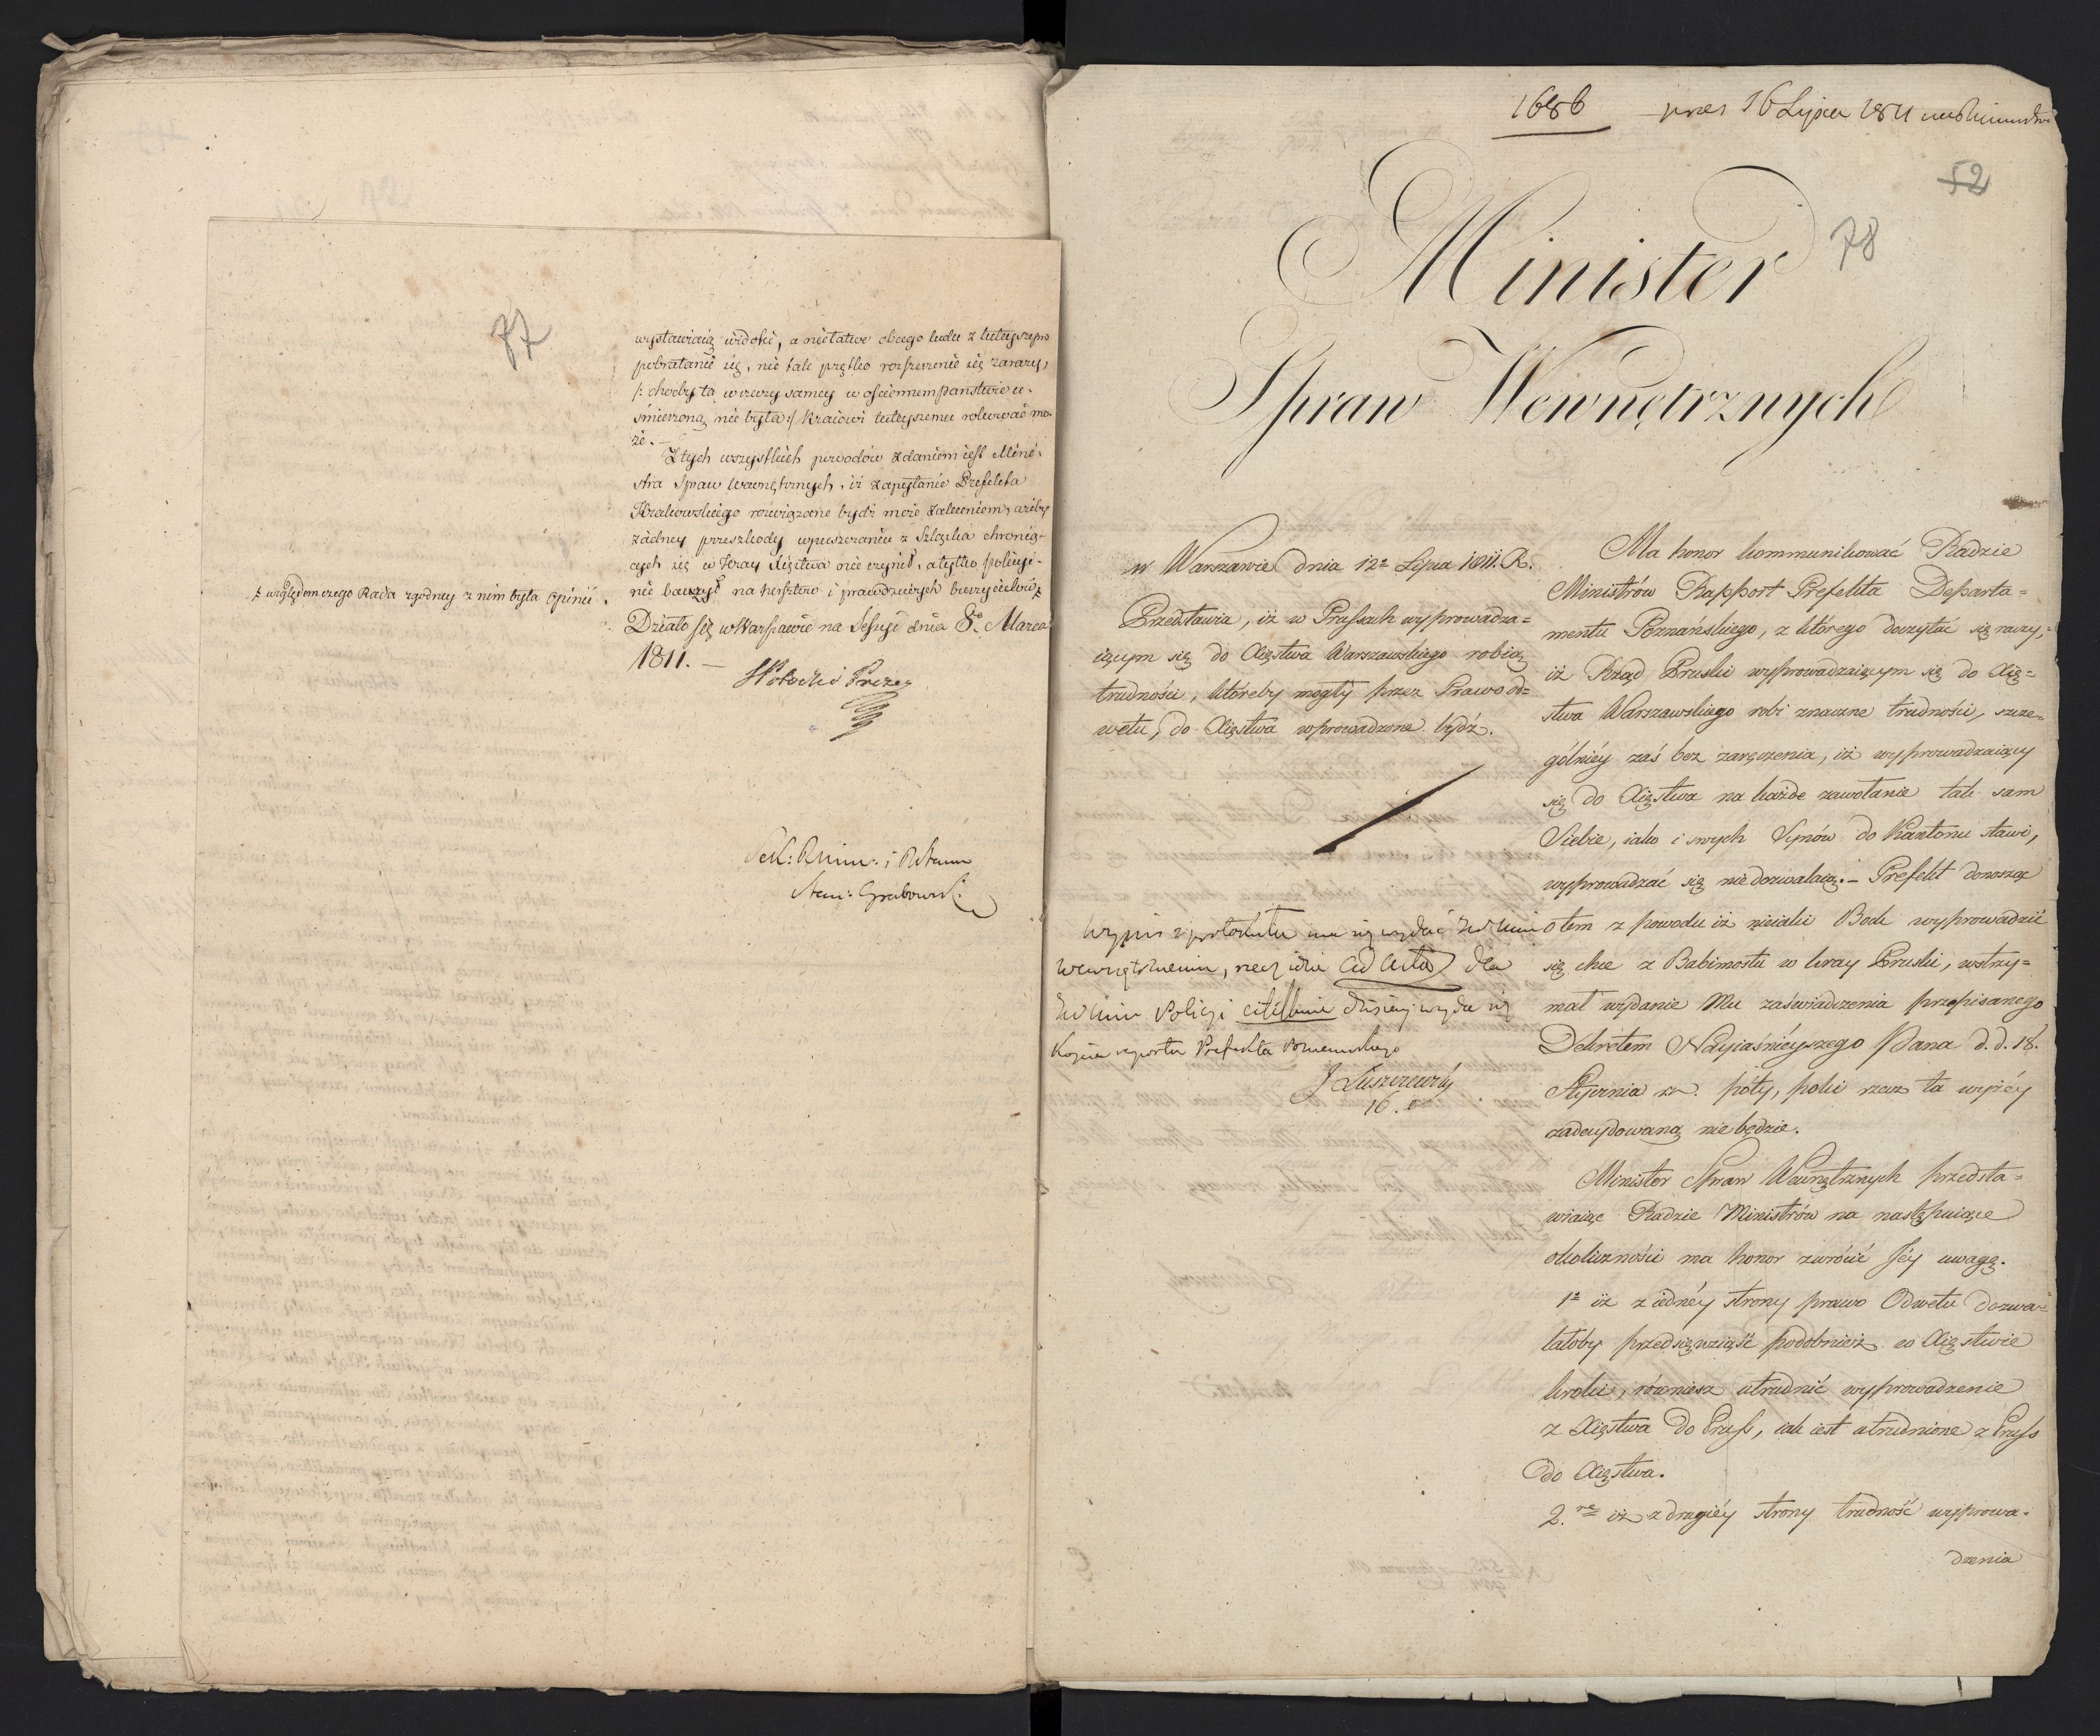 77
wystawiaią widoki, a niełatwe obcego ludu z tuteyszym
pobratanie się, nie tak prętko rozszerzenie się zarazy,
/: choćby ta w rzeczy samey w ościennem państwie u-
śmierzoną nie była :/ kraiowi tuteyszemu rokować mo-
że. —
Z tych wszystkich powodów zdaniem iest Mini-
stra Spraw Wewnętrznych, iż zapytanie Prefekta
Krakowskiego rozwiązane bydź może zaleceniem, ażeby
żadney przeszkody wpuszczaniu z Szląska chronią-
cych się w Kray Xięstwa nie czynił, a tylko policyi-
nie baczył na hersztów i prawdziwych burzycielów,
względem czego Rada zgodney z nim była Opinii.
Działo się w Warszawie na Sessyi dnia 8º Marca
1811. —
SPotocki Prezes
Sek: R Min: i R Stanu
Stan: Grabowski
1686 prez 16 Lipca 1811
52
78
Minister
Spraw Wewnętrznych
w Warszawie dnia 12º Lipca 1811. R.
Przedstawia, iż w Prussach wyprowadza=
iącym się do Xięstwa Warszawskiego robią
trudności, któreby mogły przez Prawo od=
wetu, do Xięstwa wprowadzone bydź.
Wypis z protokułu ma się wydać JW Min
Wewnętrznemu, rzecz idzie ad acta dla
JW Min Policyi citissime dzisiey wyda się
Kopia raportu Prefekta Poznanskiego
J Łuszczewski
16.
Ma honor kommunikować Radzie
Ministrów Rapport Prefekta Departa=
mentu Poznańskiego, z którego doczytać się raczy,
iż Rząd Pruski wyprowadzaiącym się do Xię=
stwa Warszawskiego robi znaczne trudności, szcze=
gólniéy zaś bez zaręczenia, iż wyprowadzaiący
się do Xięstwa na każde zawołanie tak sam
Siebie, iako i swych Synów do Kantonu stawi,
wyprowadzać się niedozwalaią. — Prefekt donosząc
o tem z powodu iż nieiaki Bock wyprowadzić
się chce z Babimostu w kray Pruski, wstrzy=
mał wydanie Mu zaświadczenia przepisanego
Dekretem Nayiaśnieyszego Pana d. d. 18.
Stycznia r. póty, póki rzecz ta wyżéy
zadecydowaną nie będzie.
Minister Spraw Wewnętrznych przedsta=
wiaiąc Radzie Ministrów na następuiące
okoliczności ma honor zwrócić Jéy uwagę.
1º iż z iednéy strony prawo Odwetu dozwa=
lałoby przedsięwziąść podobnież w Xięstwie
kroki, również utrudnić wyprowadzenie
z Xięstwa do Pruss, iak iest utrudnione z Pruss
do Xięstwa.
2.re iż z drugiéy strony trudność wyprowa-
dzenia